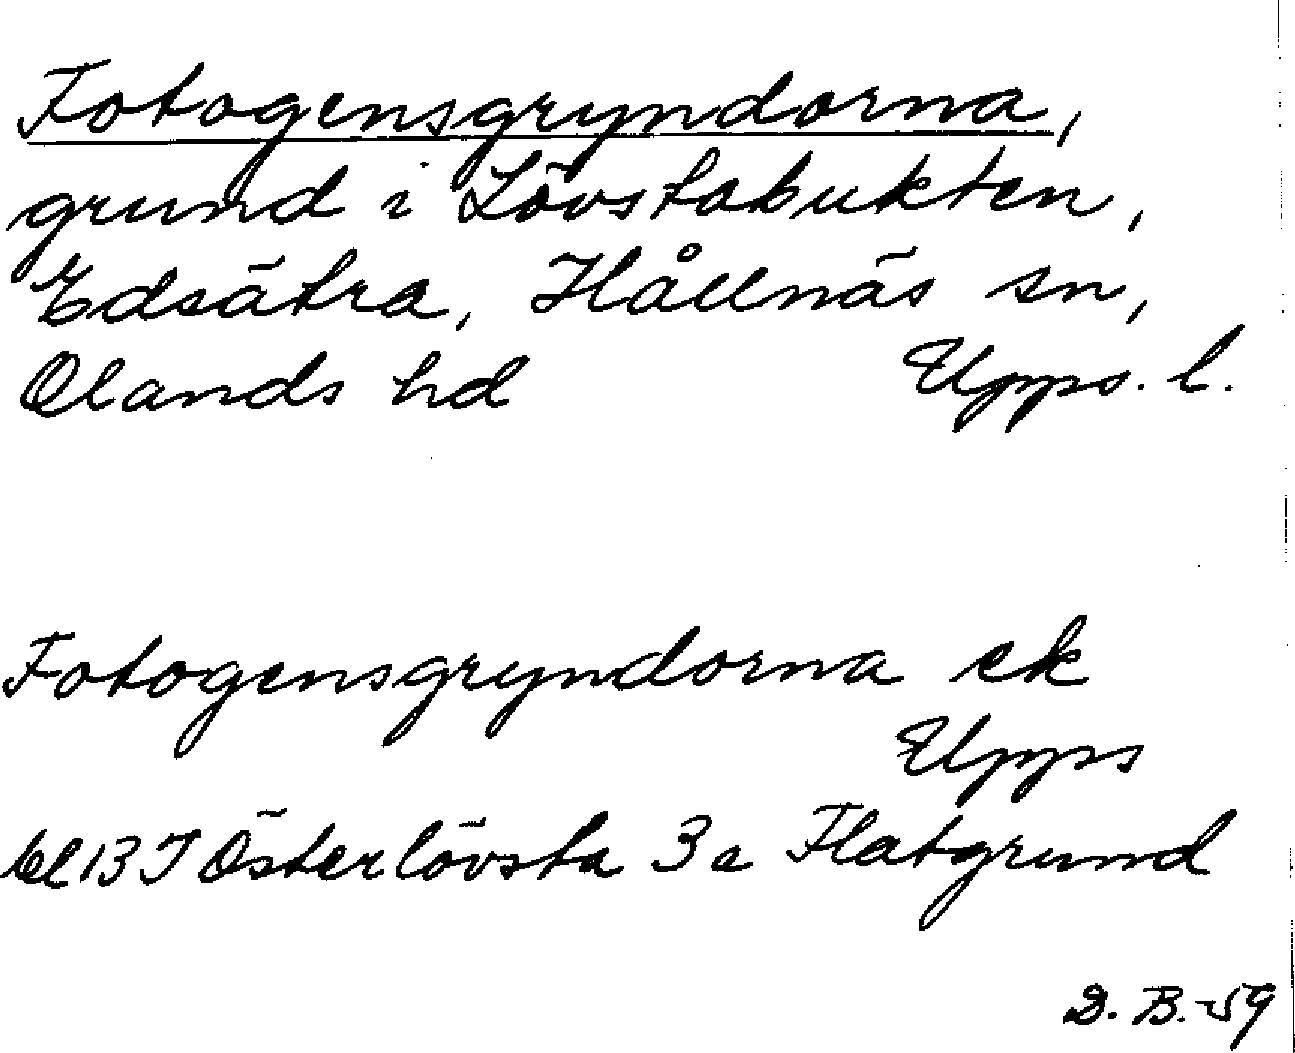 Fotogensgryndorna,
grund i Lövstabukten,
Edsätra, Hållnäs sn,
Olands hd Upps. l.
Fotogensgryndorna ek
Upps
bl 13 I Österlövsta 3 e Flatgrund
D. B. -59